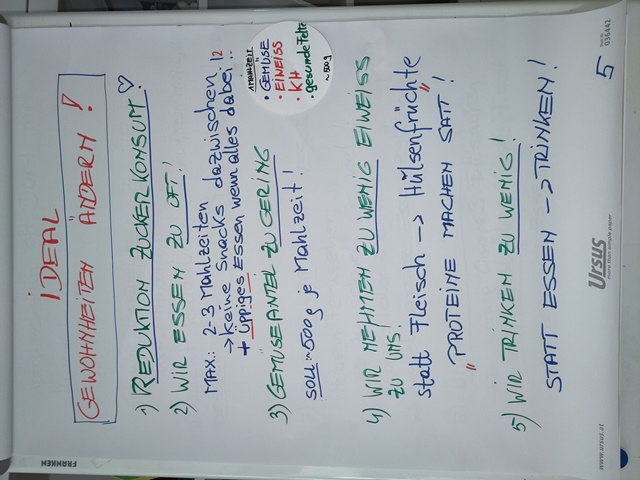 iDEAL
GEWOHNHEITEN ÄNDERN!
1) REDUKTION ZUCKERKONSUM!
2) WIR ESSEN ZU OFT!
MAX: 2-3 Mahlzeiten
→ Keine Snacks dazwischen!
+ üppiges Essen wenn alles dabei!
1 MAHLZEIT
• GEMÜSE
• EIWEISS
• KH
• gesunde Fette
~500g
3) GEMÜSEANTEIL ZU GERING
SOLL: ~500g je Mahlzeit!
4) WIR NEHMEN ZU WENIG EIWEISS
ZU UNS.
statt Fleisch → Hülsenfrüchte
"PROTEINE MACHEN SATT"!
5) WIR TRINKEN ZU WENIG!
STATT ESSEN → TRINKEN!
5
Ursus
more than simple paper
www.ursus.at
036442
FRANKEN